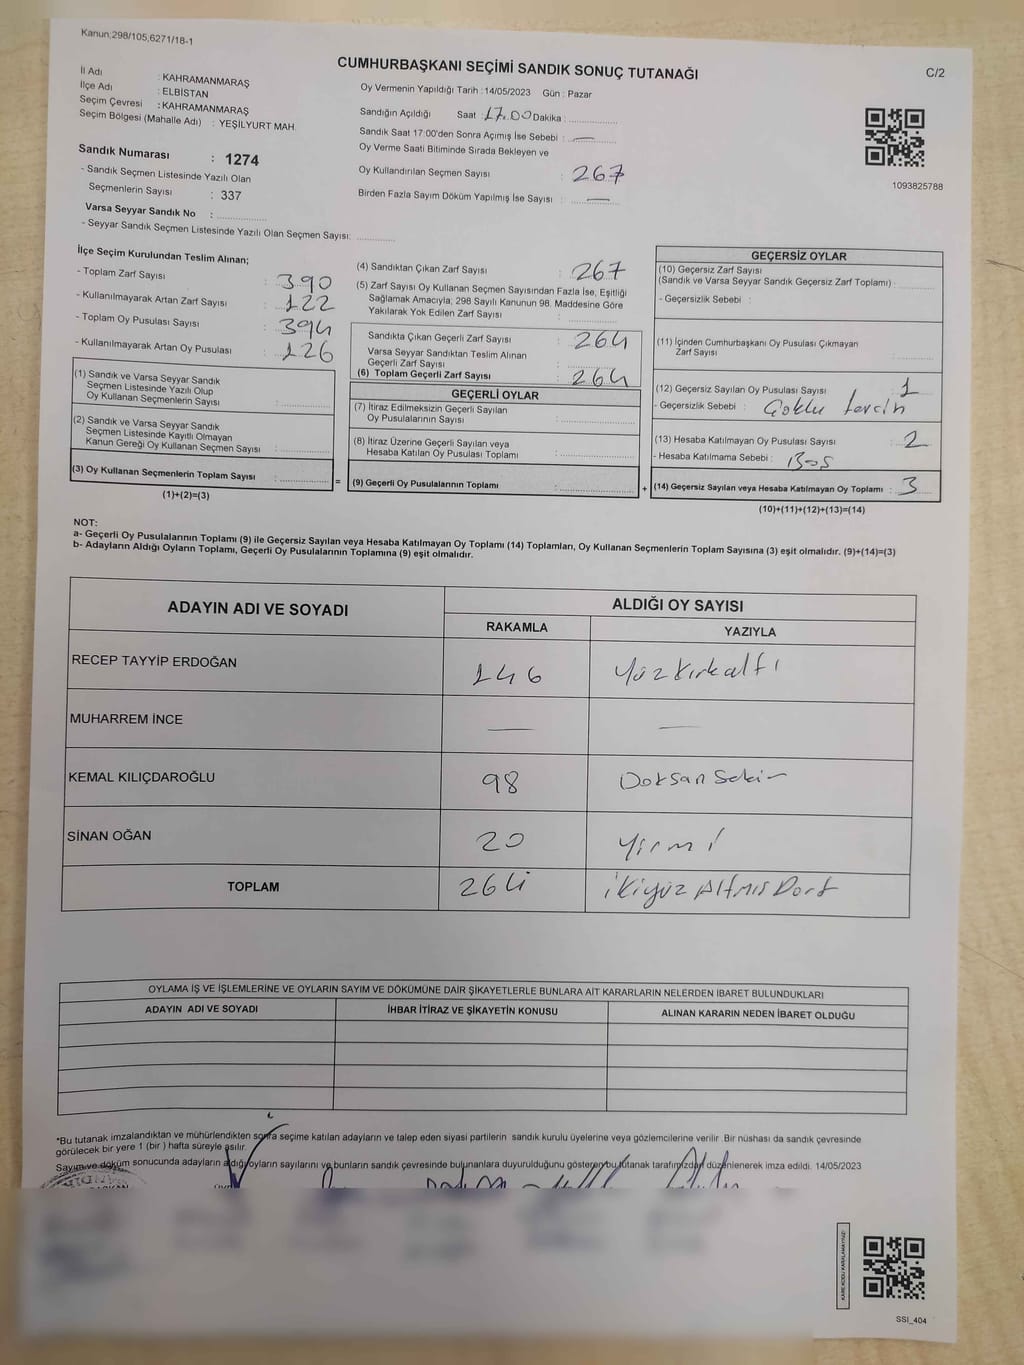 Kanun:298/105,6271/18-1
C/2
CUMHURBAŞKANI SEÇİMİ SANDIK SONUÇ TUTANAĞI
İl Adı : KAHRAMANMARAŞ
İlçe Adı : ELBİSTAN
Seçim Çevresi : KAHRAMANMARAŞ
Seçim Bölgesi (Mahalle Adı) : YEŞİLYURT MAH.
Sandık Numarası : 1274
- Sandık Seçmen Listesinde Yazılı Olan
Seçmenlerin Sayısı : 337
Varsa Seyyar Sandık No : ..............
- Seyyar Sandık Seçmen Listesinde Yazılı Olan Seçmen Sayısı: ............
Oy Vermenin Yapıldığı Tarih :14/05/2023 Gün : Pazar
Sandığın Açıldığı Saat :17.00 Dakika : ..............
Sandık Saat 17:00'den Sonra Açımış İse Sebebi : —
Oy Verme Saati Bitiminde Sırada Bekleyen ve
Oy Kullandırılan Seçmen Sayısı : 267
Birden Fazla Sayım Döküm Yapılmış İse Sayısı : —
1093825788
İlçe Seçim Kurulundan Teslim Alınan;
- Toplam Zarf Sayısı : 390
- Kullanılmayarak Artan Zarf Sayısı : 122
- Toplam Oy Pusulası Sayısı : 394
- Kullanılmayarak Artan Oy Pusulası : 126
(1) Sandık ve Varsa Seyyar Sandık
Seçmen Listesinde Yazılı Olup
Oy Kullanan Seçmenlerin Sayısı : ..............
(2) Sandık ve Varsa Seyyar Sandık
Seçmen Listesinde Kayıtlı Olmayan
Kanun Gereği Oy Kullanan Seçmen Sayısı : ..............
(3) Oy Kullanan Seçmenlerin Toplam Sayısı : ..............
(1)+(2)=(3)
=
(4) Sandıktan Çıkan Zarf Sayısı : 267
(5) Zarf Sayısı Oy Kullanan Seçmen Sayısından Fazla İse, Eşitliği
Sağlamak Amacıyla; 298 Sayılı Kanunun 98. Maddesine Göre
Yakılarak Yok Edilen Zarf Sayısı : ..............
Sandıkta Çıkan Geçerli Zarf Sayısı : 264
Varsa Seyyar Sandıktan Teslim Alınan
Geçerli Zarf Sayısı : ..............
(6) Toplam Geçerli Zarf Sayısı : 264
GEÇERLİ OYLAR
(7) İtiraz Edilmeksizin Geçerli Sayılan
Oy Pusulasının Sayısı : ..............
(8) İtiraz Üzerine Geçerli Sayılan veya
Hesaba Katılan Oy Pusulası Toplamı : ..............
(9) Geçerli Oy Pusulalarının Toplamı : ..............
+
GEÇERSİZ OYLAR
(10) Geçersiz Zarf Sayısı
(Sandık ve Varsa Seyyar Sandık Geçersiz Zarf Toplamı) : ..........
- Geçersizlik Sebebi :
(11) İçinden Cumhurbaşkanı Oy Pusulası Çıkmayan
Zarf Sayısı : ..........
(12) Geçersiz Sayılan Oy Pusulası Sayısı : 1
- Geçersizlik Sebebi : Çoklu tercih
(13) Hesaba Katılmayan Oy Pusulası Sayısı : 2
- Hesaba Katılmama Sebebi : Boş
(14) Geçersiz Sayılan veya Hesaba Katılmayan Oy Toplamı : 3
(10)+(11)+(12)+(13)=(14)
NOT:
a- Geçerli Oy Pusulalarının Toplamı (9) ile Geçersiz Sayılan veya Hesaba Katılmayan Oy Toplamı (14) Toplamları, Oy Kullanan Seçmenlerin Toplam Sayısına (3) eşit olmalıdır. (9)+(14)=(3)
b- Adayların Aldığı Oyların Toplamı, Geçerli Oy Pusulalarının Toplamına (9) eşit olmalıdır.
ADAYIN ADI VE SOYADI ALDIĞI OY SAYISI
RAKAMLA YAZIYLA
RECEP TAYYİP ERDOĞAN 146 Yüz kırk altı
MUHARREM İNCE — —
KEMAL KILIÇDAROĞLU 98 Doksan Sekiz
SİNAN OĞAN 20 Yirmi
TOPLAM 264 İkiyüz Altmış Dört
OYLAMA İŞ VE İŞLEMLERİNE VE OYLARIN SAYIM VE DÖKÜMÜNE DAİR ŞİKAYETLERLE BUNLARA AİT KARARLARIN NELERDEN İBARET BULUNDUKLARI
ADAYIN ADI VE SOYADI İHBAR İTİRAZ VE ŞİKAYETİN KONUSU ALINAN KARARIN NEDEN İBARET OLDUĞU
*Bu tutanak imzalandıktan ve mühürlendikten sonra seçime katılan adayların ve talep eden siyasi partilerin sandık kurulu üyelerine veya gözlemcilerine verilir. Bir nüshası da sandık çevresinde
görülecek bir yere 1 (bir ) hafta süreyle asılır.
Sayım ve döküm sonucunda adayların aldığı oyların sayılarını ve bunların sandık çevresinde bulunanlara duyurulduğunu gösteren bu tutanak tarafımızdan düzenlenerek imza edildi. 14/05/2023
SSI_404